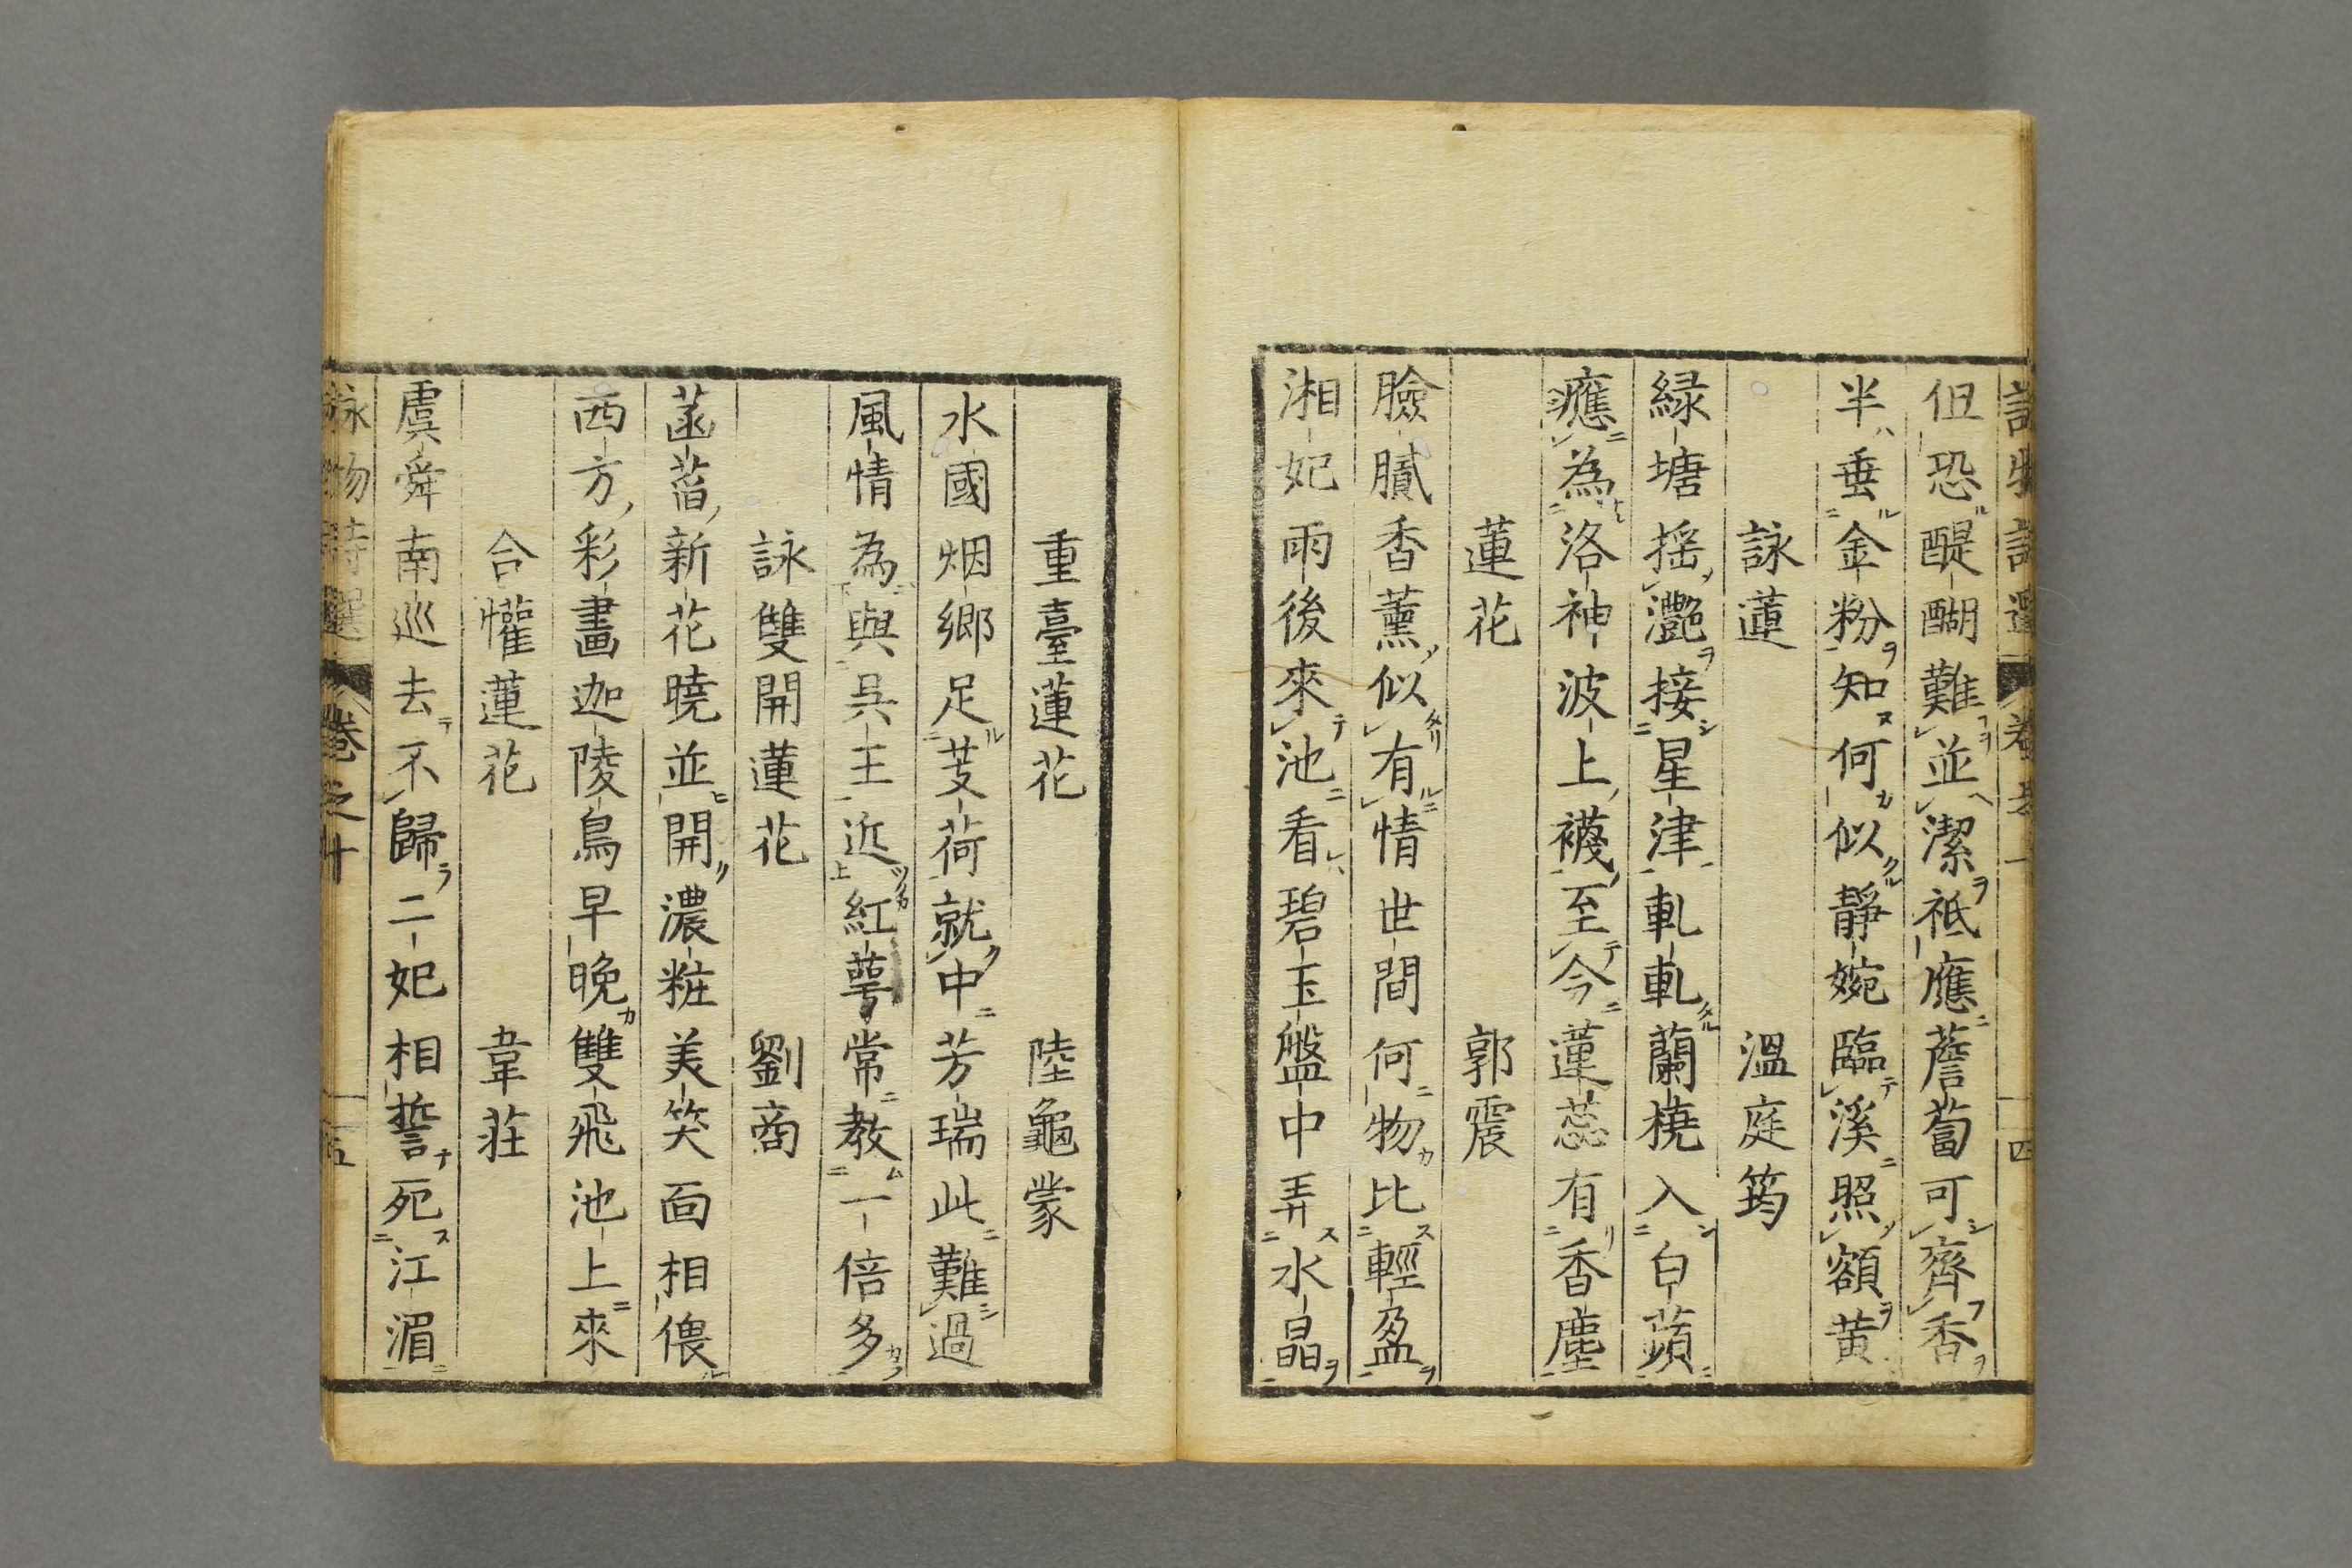 但恐醍醐難並潔祇應薝蔔可齊香
半垂金粉知何似靜婉臨溪照額黄
詠蓮　溫庭筠
緑塘搖灔接星津軋軋蘭橈入白蘋
應為洛神波上襪至今蓮蕊有香塵
蓮花　郭震
臉膩香薰似有情世間何物比輕盈
湘妃雨後來池看碧玉盤中弄水晶
重臺蓮花　陸龜蒙
水國烟鄉足芰荷就中芳瑞此難過
風情為與呉王近紅萼常教一倍多
詠雙開蓮花　劉商
菡萏新花曉並開濃粧美笑面相偎
西方彩畫迦陵鳥早晚雙飛池上來
合懽蓮花　韋莊
虞舜南巡去不歸二妃相誓死江湄
詠物詩選　卷之十　五